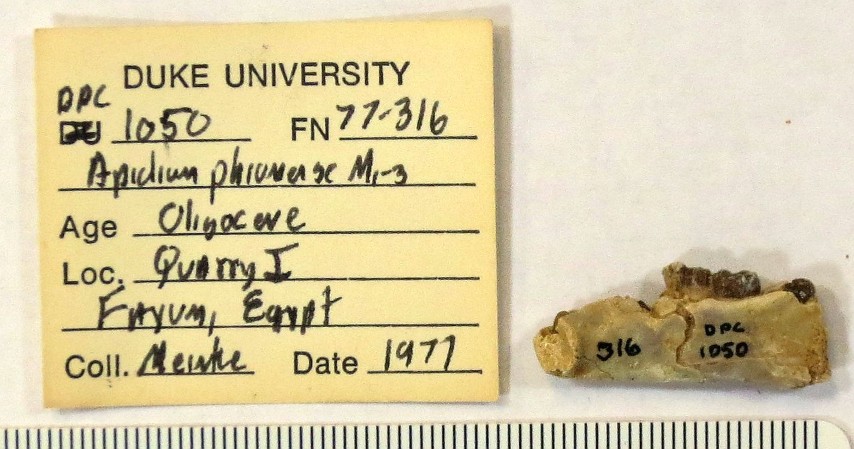 DUKE UNIVERSITY
DPC
DU 1050 FN 77-316
Apidium phiomense M1-3
Age Oligocene
Loc. Quarry I
Fayum, Egypt
Coll. Meinke Date 1977
316
DPC
1050